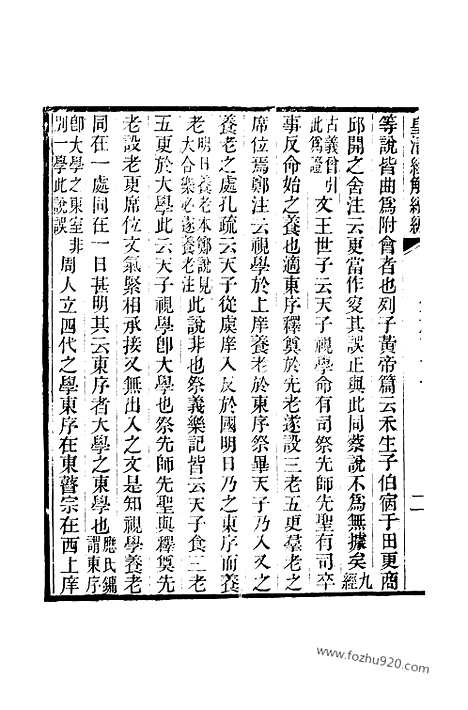 皇清經解續編
二
等說皆曲爲附會者也列子黃帝篇云禾生子伯宿于田更商
邱開之舍注云更當作叟其誤正與此同蔡說不爲無據矣九經
古義曾引此爲證文王世子云天子視學命有司祭先師先聖有司卒
事反命始之養也適東序釋奠於先老遂設三老五更羣老之
席位焉鄭注云視學於上庠養老於東序祭畢天子乃入又之
養老之處孔疏云天子從虞庠入反於國明日乃之東序而養
老明日養老本鄭說見大合樂必遂養老注此說非也祭義樂記皆云天子食三老
五更於大學此云天子視學卽大學也祭先師先聖與釋奠先
老設老更席位文氣緊相承接又無出入之文是知視學養老
同在一處同在一日甚明其云東序者大學之東學也應氏鏞謂東序
卽大學之東室非別一學此說誤周人立四代之學東序在東瞽宗在西上庠
www.fozhu920.com